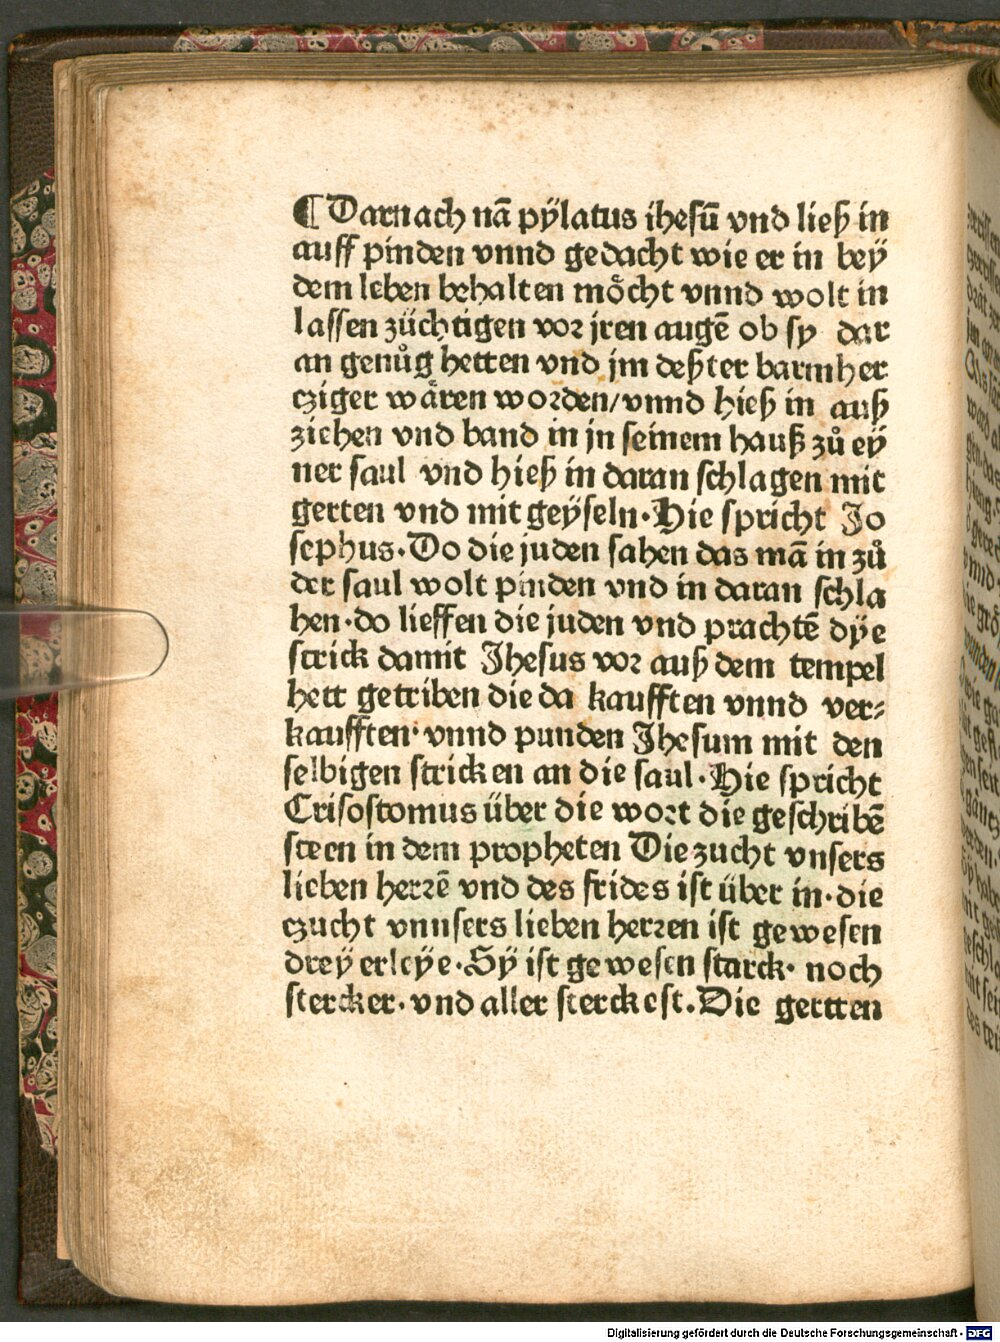 ¶Darnach nā pÿlatus ihesū vnd ließ in
auff pinden vnnd gedacht wie er in beÿ
dem leben behalten moͤcht vnnd wolt in
lassen züchtigen vor jren augē ob sy dar
an genuͦg hetten vnd jm deßter barmher
cziger waͤren worden/vnnd hieß in auß
ziehen vnd band in jn seinem hauß zuͦ eÿ
ner saul vnd hieß in daran schlagen mit
gerten vnd mit geÿseln·Hie spricht Jo
sephus·Do die juden sahen das mā in zuͦ
der saul wolt pinden vnd in daran schla
hen·do lieffen die juden vnd prachtē dÿe
strick damit Jhesus vor auß dem tempel
hett getriben die da kaufften vnnd ver⸗
kaufften·vnnd punden Jhesum mit den
selbigen stricken an die saul·Hie spricht
Crisostomus über die wort die geschribē
steen in dem propheten Die zucht vnsers
lieben herrē vnd des frides ist über in·die
czucht vnnsers lieben herren ist gewesen
dreÿerleÿe·Sÿ ist gewesen starck· noch
stercker·vnd aller sterckest.Die gertten
Digitalisierung gefördert durch die Deutsche Forschungsgemeinschaft - DFG